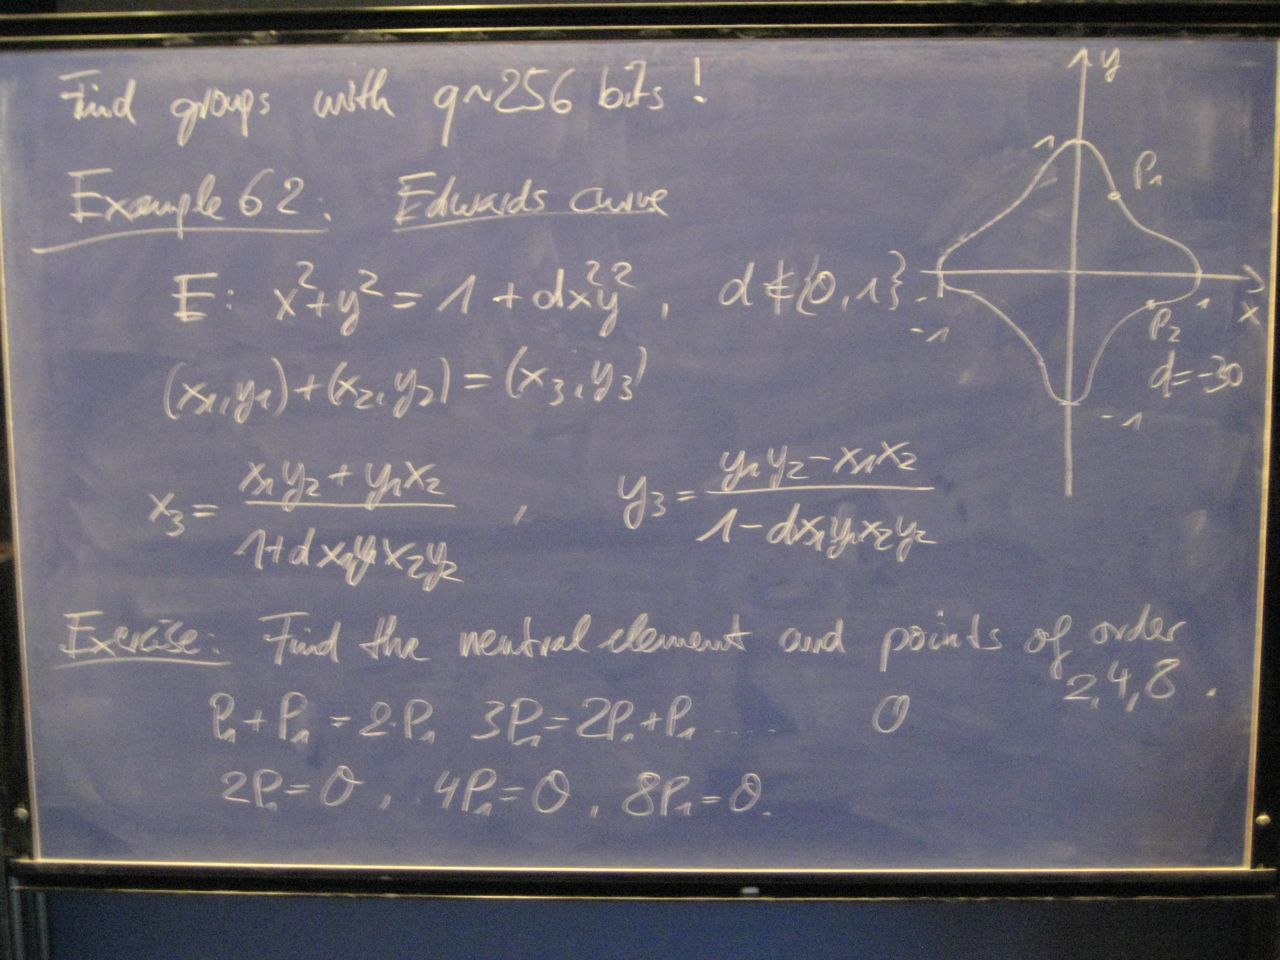 Find groups with q~256 bits !
Example 62: Edwards curve
E: x²+y² = 1 + dx²y² , d ∉ {0,1}
(x₁,y₁)+(x₂,y₂) = (x₃,y₃)
x₃ = (x₁y₂ + y₁x₂)/(1+dx₁y₁x₂y₂) , y₃ = (y₁y₂ − x₁x₂)/(1−dx₁y₁x₂y₂)
Exercise: Find the neutral element and points of order
2,4,8.
P₁+P₁ = 2·P₁ 3P₁=2P₁+P₁ ..... O
2P₁=O, 4P₁=O, 8P₁=O.
y
1
P₁
-1
1
x
P₂
d=-30
-1